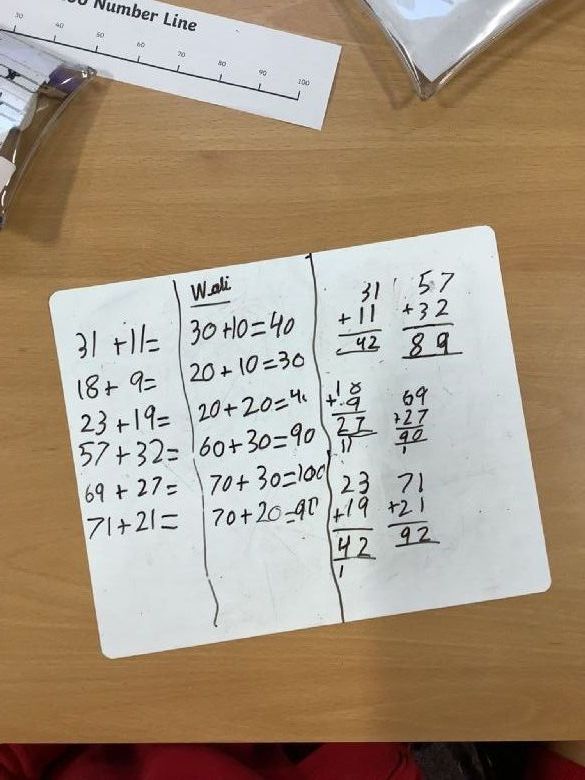 Number Line
30 40 50 60 70 80 90 100
31 + 11 =
18 + 9 =
23 + 19 =
57 + 32 =
69 + 27 =
71 + 21 =
Wali
30 + 10 = 40
20 + 10 = 30
20 + 20 = 4
60 + 30 = 90
70 + 30 = 100
70 + 20 = 90
31 57
+ 11 + 32
42 89
18 69
+ 9 + 27
27 90
11 1
23 71
+ 19 + 21
42 92
1